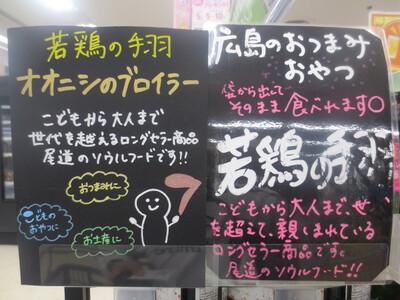 若鶏の手羽
オオニシのブロイラー
こどもから大人まで
世代を越えるロングセラー商品
尾道のソウルフードです!!
おつまみに
こどもの
おやつに
お土産に
広島のおつまみ
おやつ
袋から出して
そのまま食べれます○
若鶏の手
こどもから大人まで、せ
を超えて、親しまれている
ロングセラー商品です。
尾道のソウルフード!!